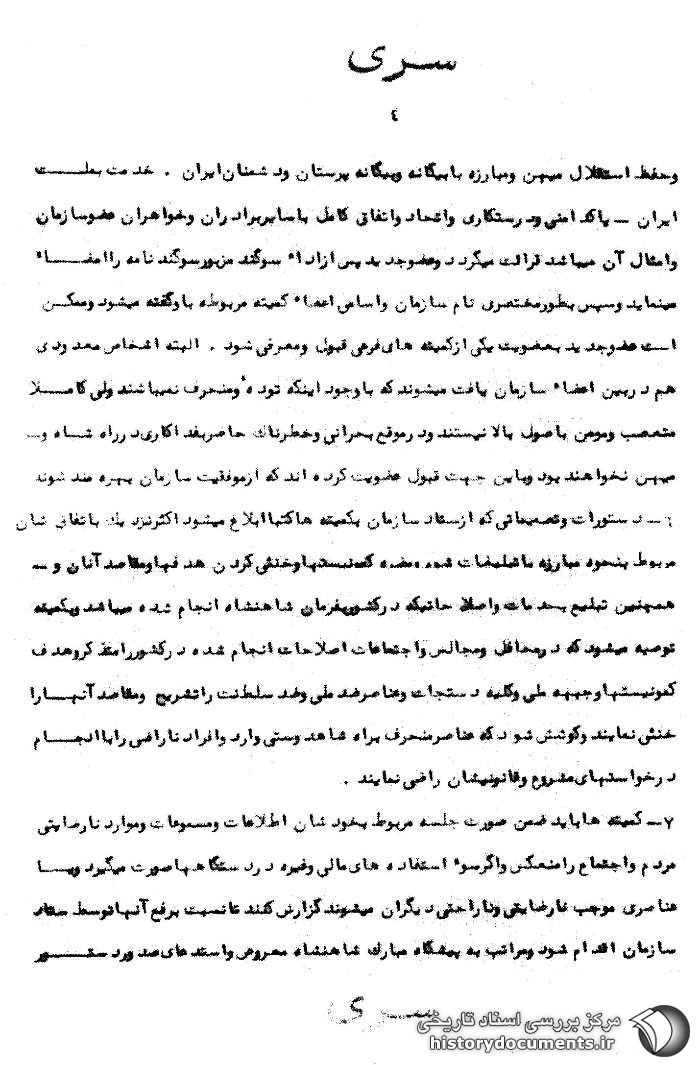 سری
٤
وحفظ استقلال میهن ومبارزه بابیگانه وبیگانه پرستان ودشمنان ایران . خدمت بملت
ایران ــ پاکدامنی ودرستکاری واتحاد واتفاق کامل باسایربرادران وخواهران عضوسازمان
وامثال آن میباشد قرائت میگردد وعضوجدید پس ازاداء سوگند مزبورسوگند نامه راامضاء
مینماید وسپس بطورمختصری نام سازمان واسامی اعضاء کمیته مربوطه باوگفته میشود وممکن
است عضوجدید بعضویت یکی ازکمیته های فرعی قبول ومعرفی شود . البته اشخاص معدودی
هم دربین اعضاء سازمان یافت میشوند که باوجود اینکه تودهٔ ومنحرف نمیباشند ولی کاملا
متعصب ومومن باصول بالا نیستند ودرموقع بحرانی وخطرناك حاضربفداکاری درراه شاه و ــ
میهن نخواهند بود وباین جهت قبول عضویت کرده اند که ازموفقیت سازمان بهره مند شوند
٦ــ دستورات وتصمیماتی که ازستاد سازمان بکمیته هاکتبا ابلاغ میشود اکثرنزدیك باتفاق شان
مربوط بنحوه مبارزه باتبلیغات کمونیستهاوخنثی کردن هدفهاومقاصد آنان و ــ
همچنین تبلیغ بخدمات واصلاحاتیکه درکشوربفرمان شاهنشاه انجام شده میباشد وبکمیته
توصیه میشود که درمحافل ومجالس واجتماعات اصلاحات انجام شده درکشوررامتذکروهدف
کمونیستهاوجبهه ملی وکلیه دستجات وعناصرضد ملی وضد سلطنت راتشریح ومقاصد آنهارا
خنثی نمایند وکوشش شود که عناصرمنحرف براه شاهدوستی وارد وافراد ناراضی راباانجام
درخواستهای مشروع وقانونیشان راضی نمایند .
٧ــ کمیته هاباید ضمن صورت جلسه مربوط بخودشان اطلاعات ومسموعات وموارد نارضایتی
مردم واجتماع رامنعکس واگرسوء استفاده های مالی وغیره دردستگاههاصورت میگیرد ویا
عناصری موجب نارضایتی وناراحتی دیگران میشوند گزارش کنند تانسبت برفع آنهاتوسط ستاد
سازمان اقدام شود ومراتب به پیشگاه مبارك شاهنشاه معروض واستدعای صدوردستور
سری
مرکز بررسی اسناد تاریخی
historydocuments.ir